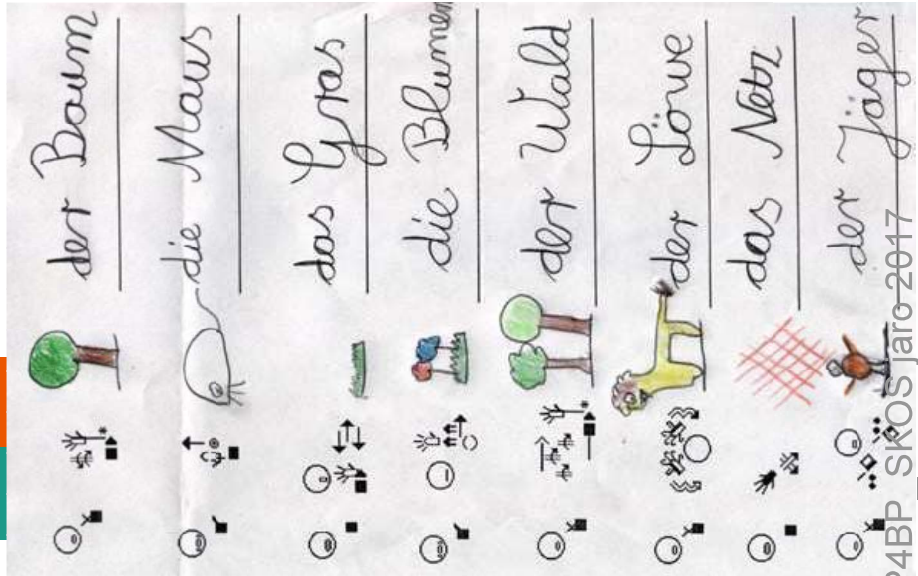 der Baum
die Maus
das Gras
die Blumen
der Wald
der Löwe
das Netz
der Jäger
P4BP_SKOS jaro 2017